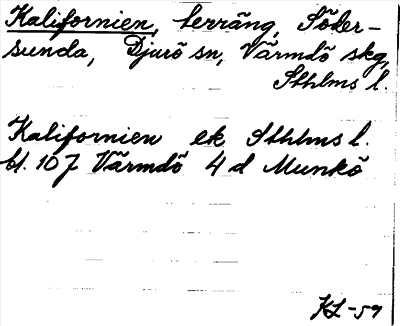 Kalifornien, terräng, Söder-
sunda, Djurö sn, Värmdö skg,
Sthlms l.
Kalifornien ek Sthlms l.
bl. 107 Värmdö 4 d Munkö
KL-59